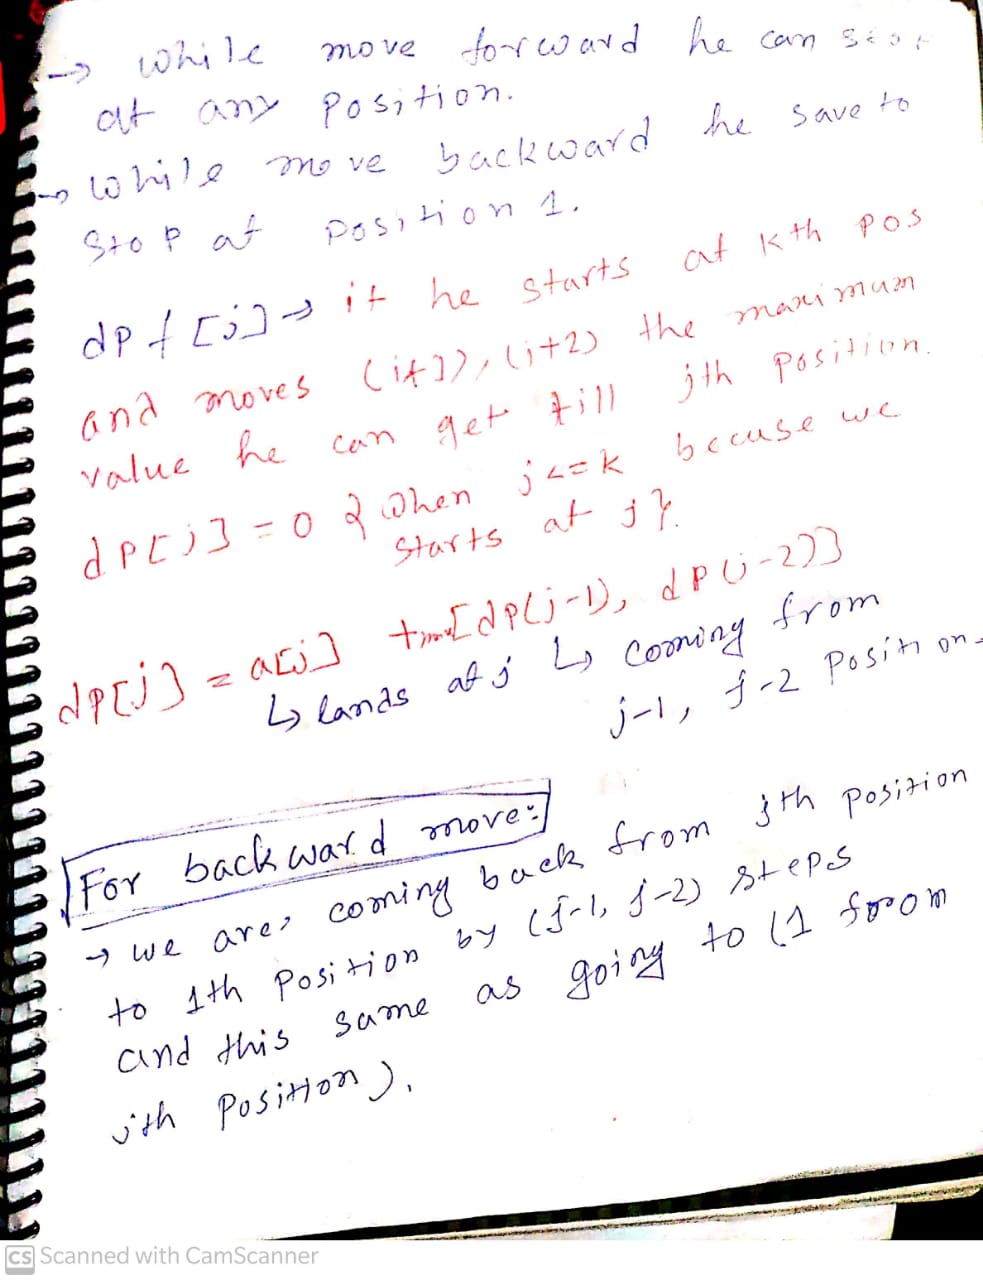 → While move forward he can stop
at any position.
→ While move backward he save to
stop at position 1.
dpf[j] → if he starts at kth pos
and moves (i+1), (i+2) the maximum
value he can get till jth position.
dp[j] = 0 { when j <= k becuse we
starts at j }.
dp[j] = a[j] + [dp(j-1), dp(j-2)]
↳ lands at j ↳ coming from
j-1, j-2 position
For backward move:
→ we are coming back from jth position
to 1th position by (j-1, j-2) steps
and this same as going to (1 from
jth position).
CS Scanned with CamScanner